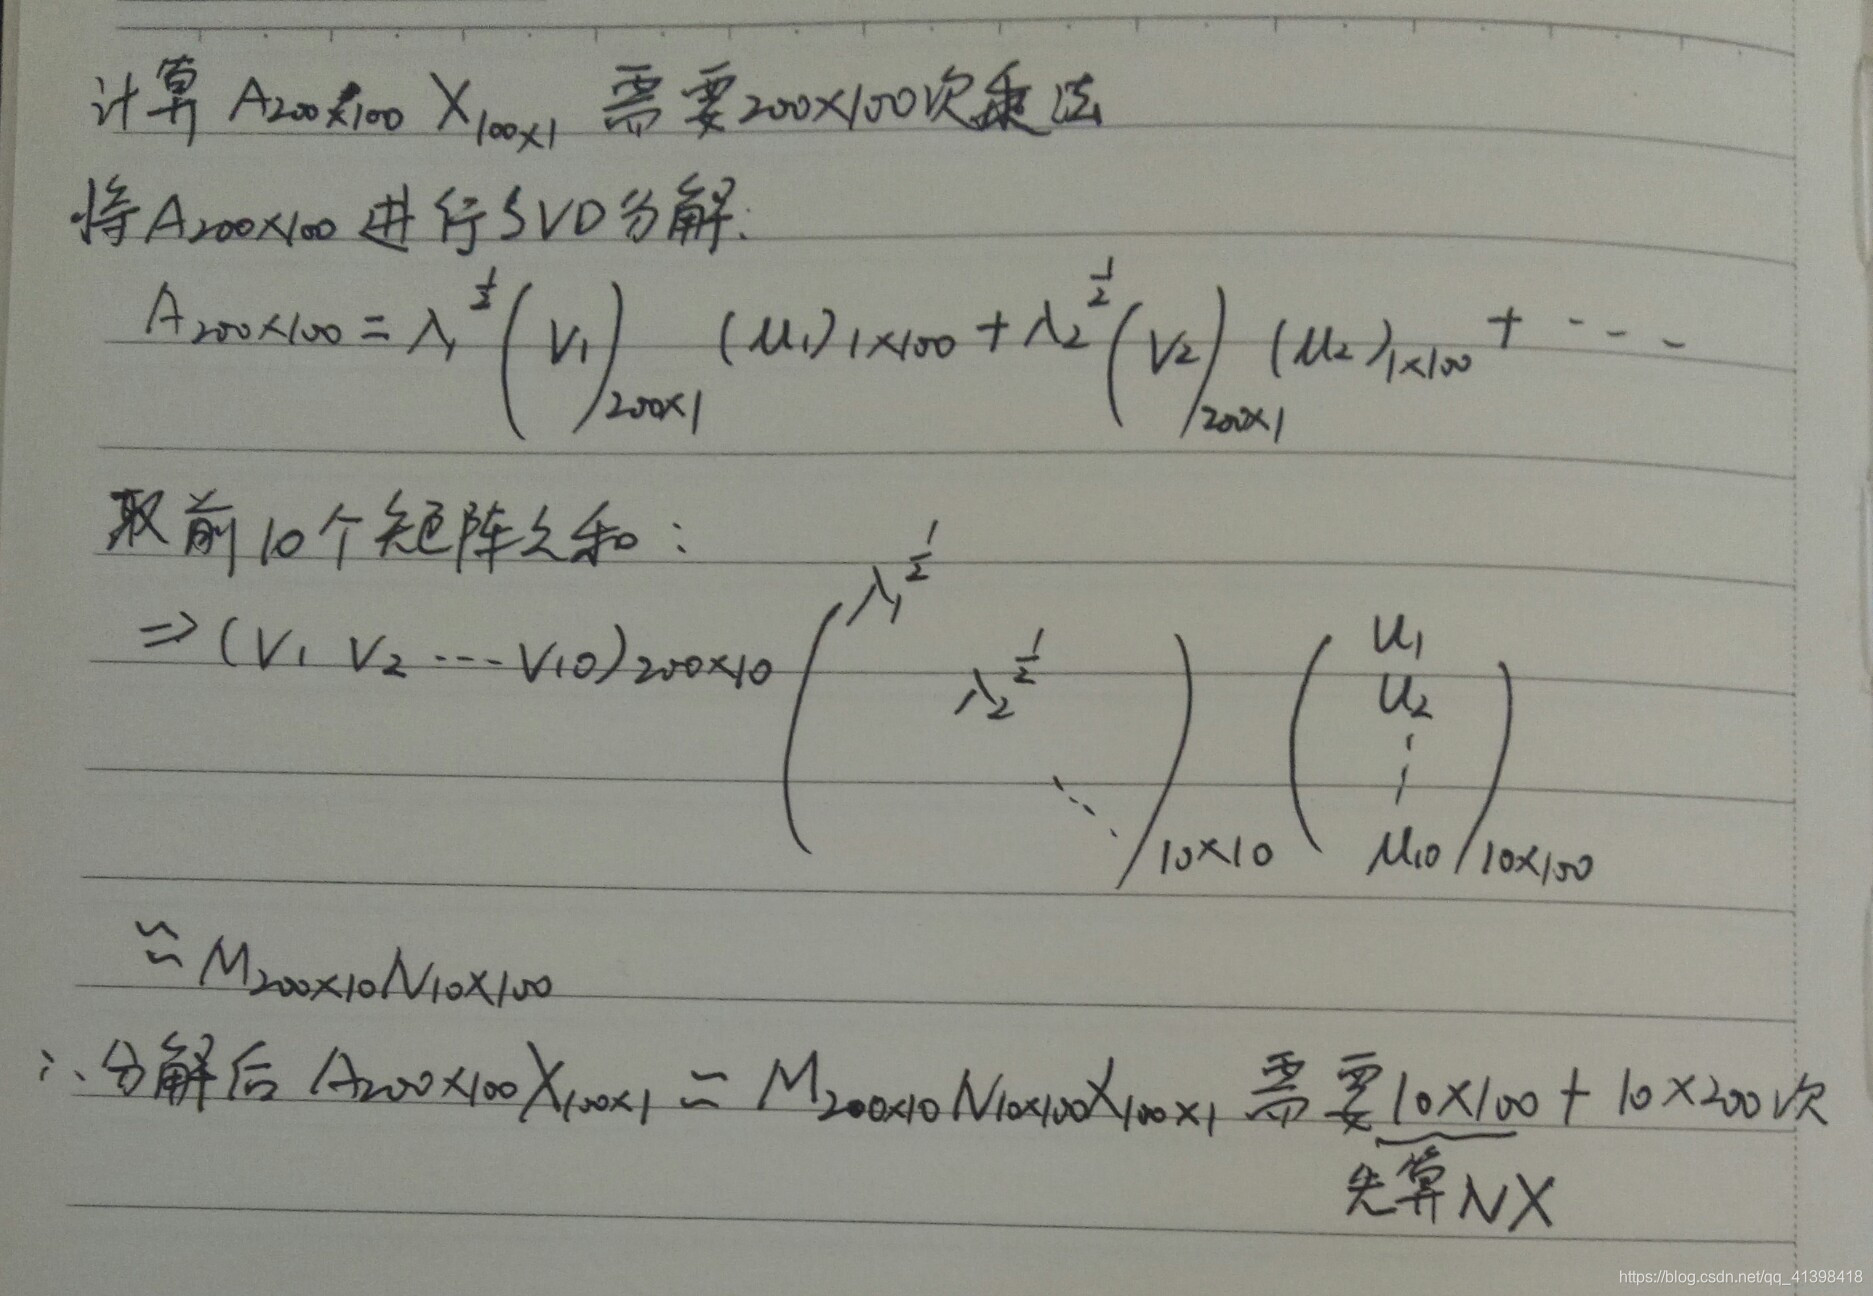 计算 A200×100 X100×1 需要200×100次乘法
将A200×100 进行SVD分解:
A200×100 = λ1^½ (V1)200×1 (μ1)1×100 + λ2^½ (V2)200×1 (μ2)1×100 + ---
取前10个矩阵之和:
λ1^½
⇒ (V1 V2 ... V10)200×10 ( λ2^½ ⋱ )10×10 ( u1 u2 ⋮ μ10 )10×100
≈ M200×10N10×100
∴分解后 A200×100X100×1 ≈ M200×10N10×100X100×1 需要10×100 + 10×200次
先算NX
https://blog.csdn.net/qq_41398418